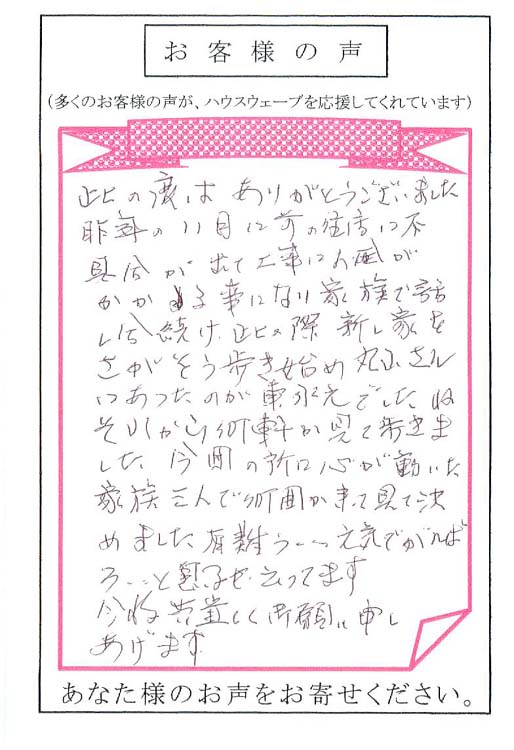 お客様の声
（多くのお客様の声が、ハウスウェーブを応援してくれています）
此の度は ありがとうございました
昨年の11月に前の住居に不
具合が出て工事にお金が
かかる事になり家族で話
し合続け、此の際 新し家を
さがそう歩き始め 丸山さん
にあったのが
それから何軒か見て歩きま
した 今回の所に心が動いた
家族三人で何回か来て見て決
めました 有難う… 元気でがんば
ろ…と 云ってます
今後共宜しく御願い申し
あげます
あなた様のお声をお寄せください。